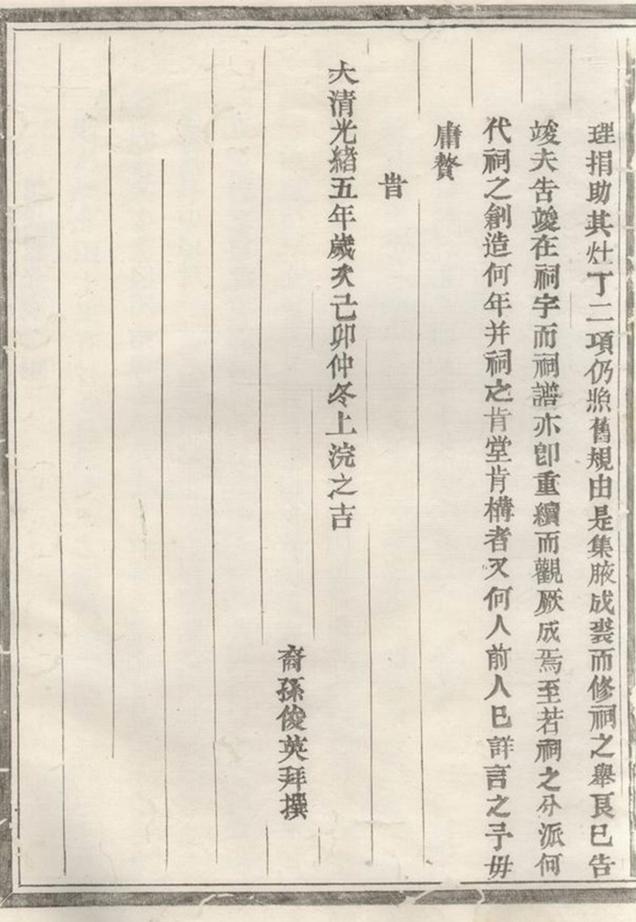 理捐助其灶丁二項仍照舊規由是集腋成裘而修祠之舉良已告
竣夫告竣在祠宇而祠譜亦卽重續而觀厥成焉至若祠之分派何
代祠之創造何年并祠之肯堂肯構者又何人前人已詳言之予毋
庸贅
旹
大清光緒五年歲次己卯仲冬上浣之吉
裔孫俊英拜撰